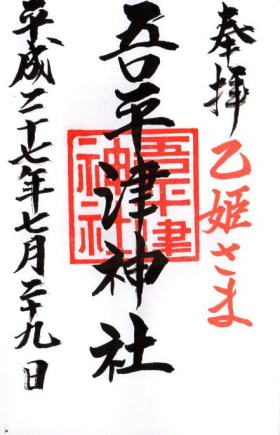 奉拝
乙姫さま
吾平津神社
吾平津
神社
平成二十七年七月二十九日